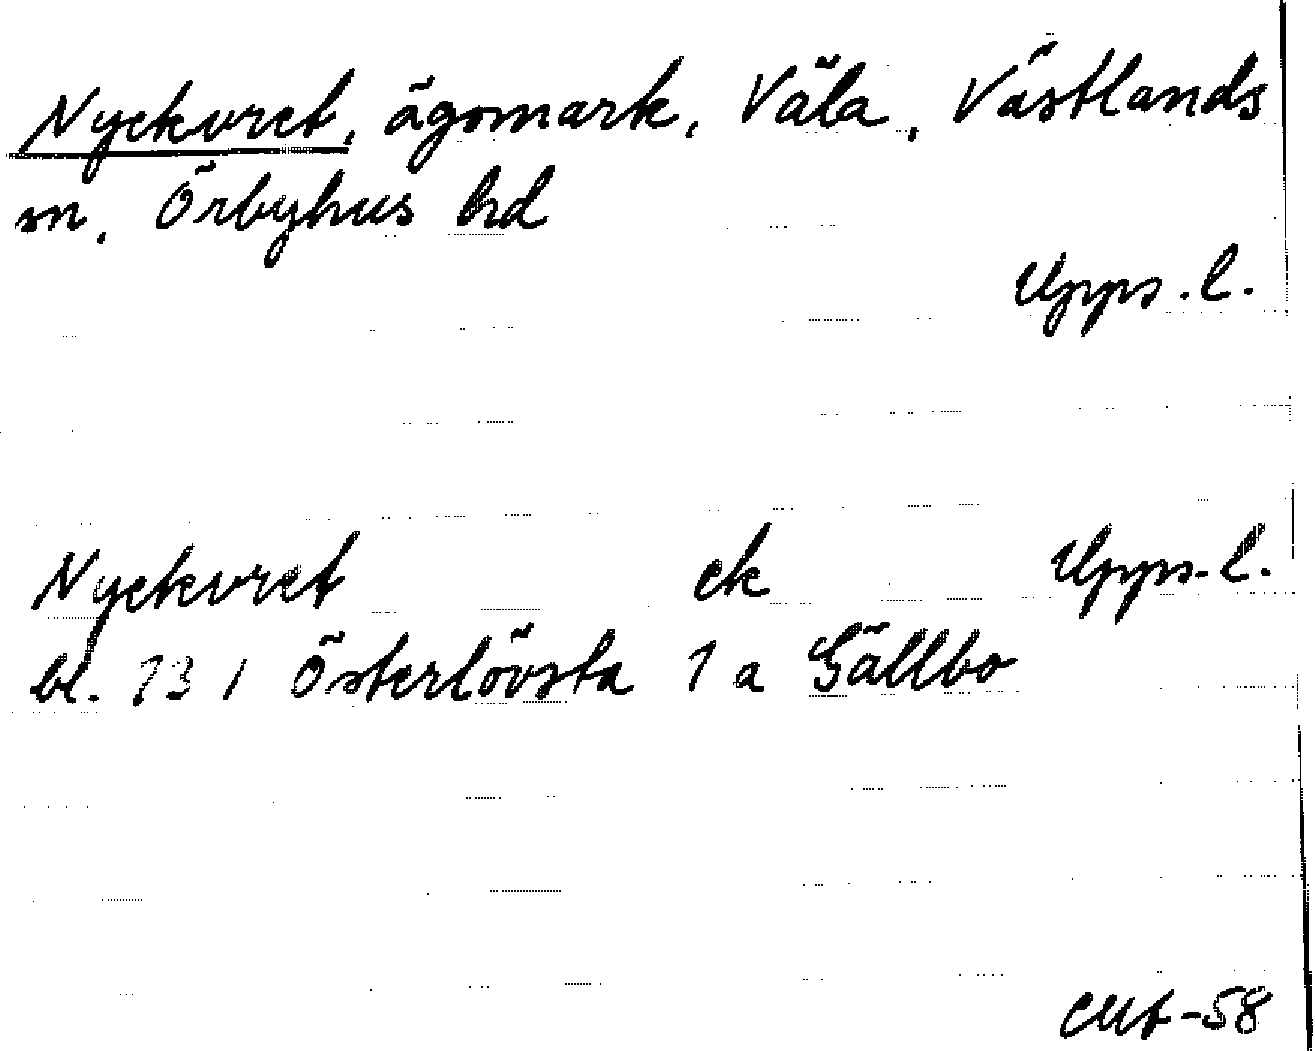 Nyckvret, ägomark, Väla, Västlands
sn, Örbyhus hd
Upps. l.
Nyckvret ek Upps. l.
bl. 13 1 Österlövsta 1 a Gällbo